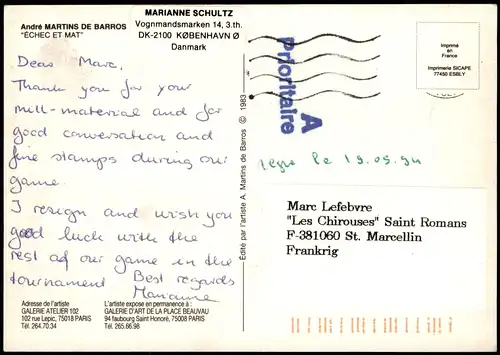 André MARTINS DE BARROS
"ÉCHEC ET MAT"
MARIANNE SCHULTZ
Vognmandsmarken 14, 3.th.
DK-2100 KØBENHAVN Ø
Danmark
Dear Marc,
Thank you for your
mill-material and for
good conversation and
fine stamps during our
game.
I resign and wish you
good luck with the
rest of our game in the
tournament Best regards
Marianne
Adresse de l'artiste
GALERIE ATELIER 102
102 rue Lepic, 75018 PARIS
Tél. 264.70.34
L'artiste expose en permanence à :
GALERIE D'ART DE LA PLACE BEAUVAU
94 faubourg Saint Honoré, 75008 PARIS
Tél. 265.66.98
Édité par l'artiste A. Martins de Barros © 1983
A
Prioritaire
Imprimé
en
France
Imprimerie SICAPE
77450 ESBLY
reçue le 19.05.94
Marc Lefebvre
"Les Chirouses" Saint Romans
F-381060 St. Marcellin
Frankrig